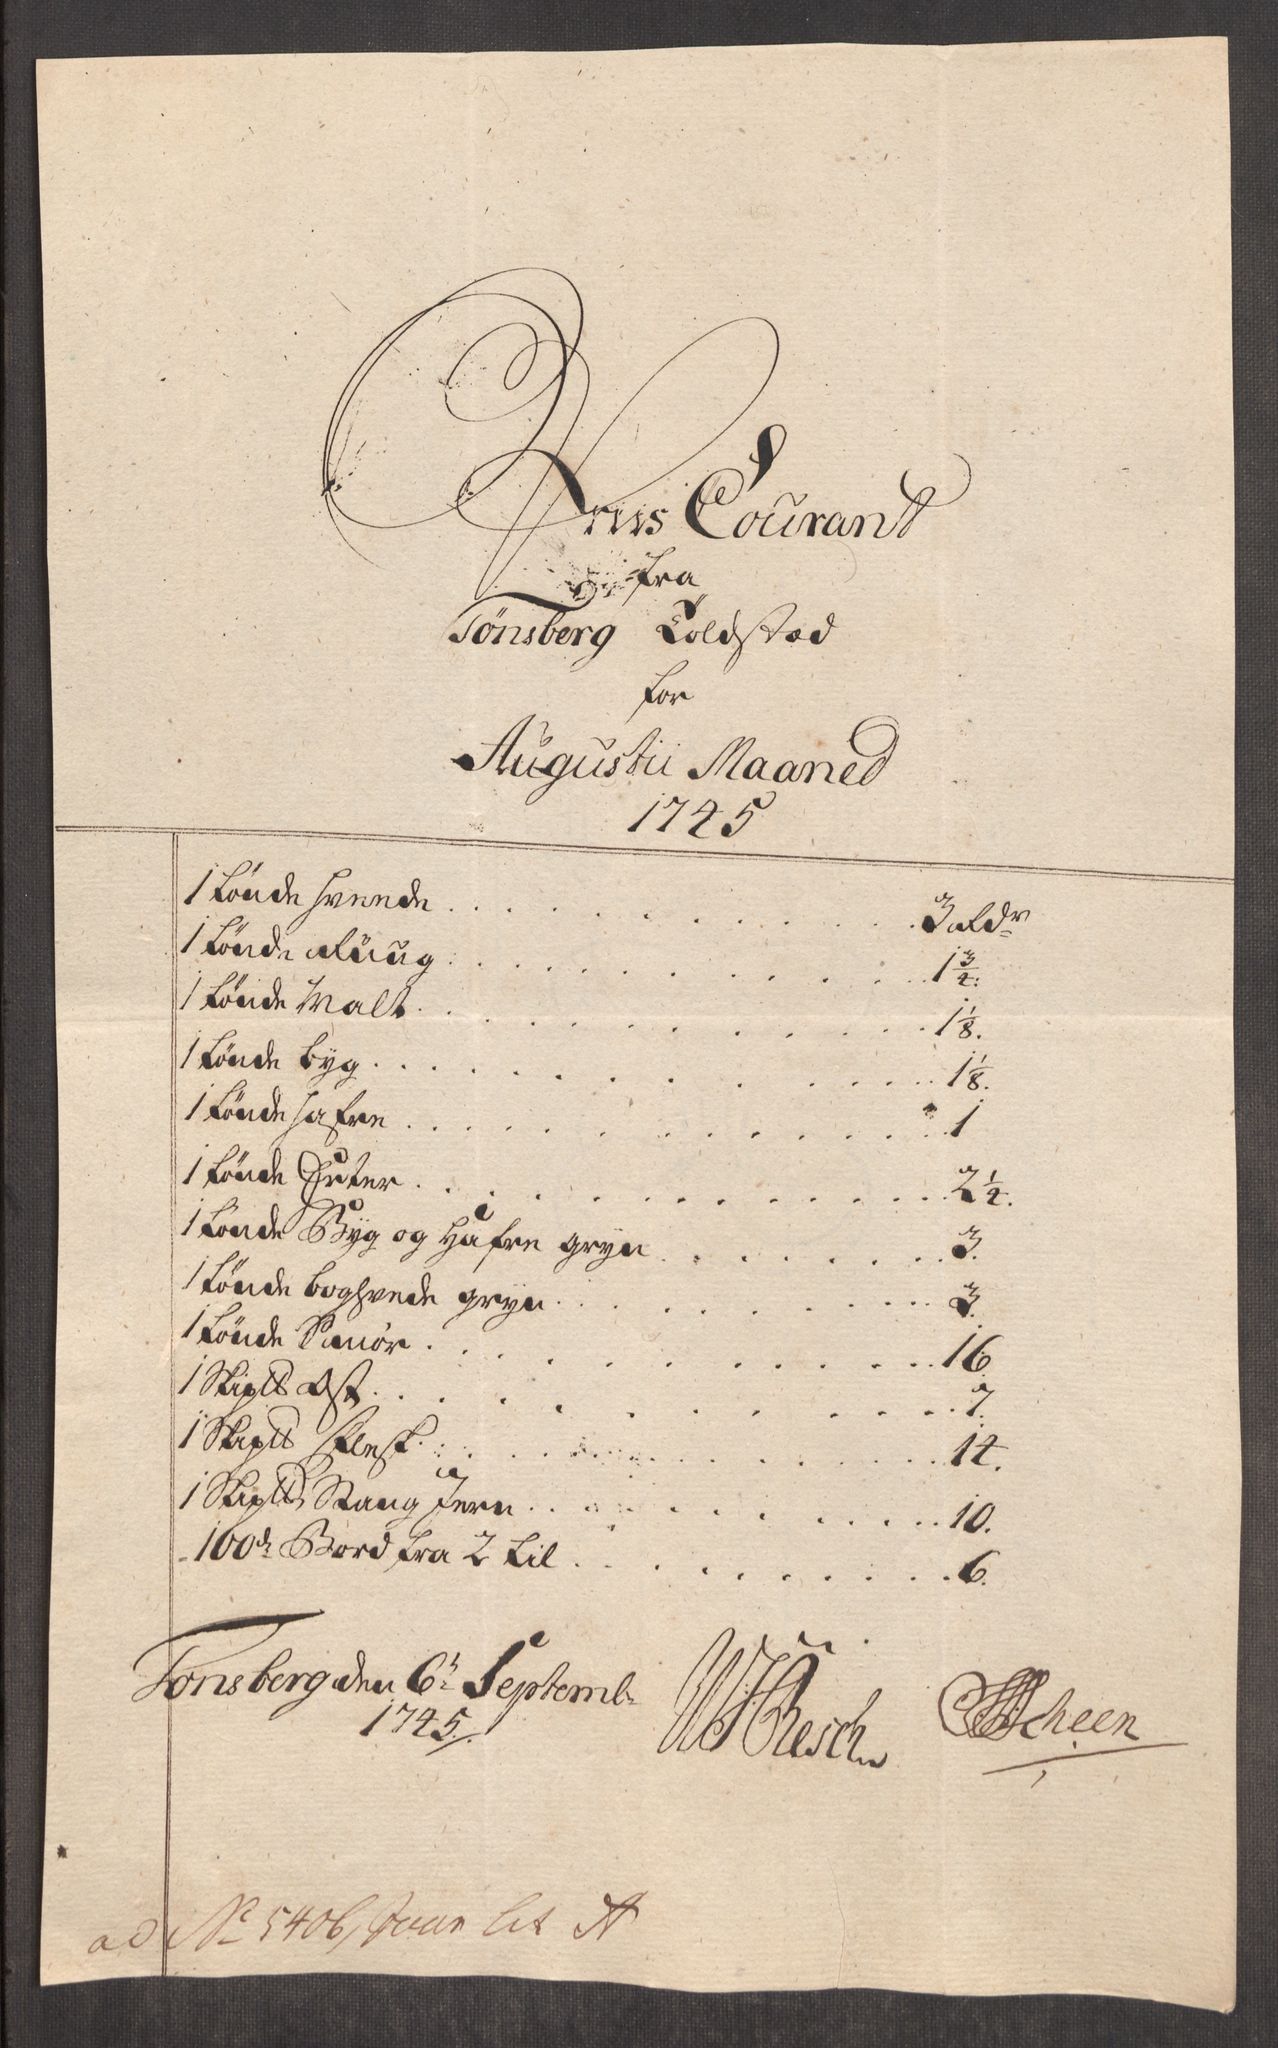 Priis Courant
fra
Tönsberg Toldstæd
for
Augustii Maaned
1745
1 tönde hveede . . . . . . . . . . 3 Rdr
1 tönde Ruug . . . . . . . . . . 1 3/4.
1 tönde Malt . . . . . . . . . . 1 1/8.
1 tönde byg . . . . . . . . . . 1 1/8.
1 tönde hafre . . . . . . . . . . 1
1 tönde Erter . . . . . . . . . . 2 1/4.
1 tönde Byg og Hafre gryn . . . . . . 3.
1 tönde boghvede gryn . . . . . . . . 3.
1 tönde Smör . . . . . . . . . . 16
1 Skip℔ Ost . . . . . . . . . . 7.
1 Skip℔ Flesk . . . . . . . . . . 14.
1 Skip℔ Stang Jern . . . . . . . . 10.
100de Bord fra 2 til . . . . . . . . 6.
Tönsberg den 6t Septemb:
1745.
Resch
Scheen
ad No 5406, Lit A